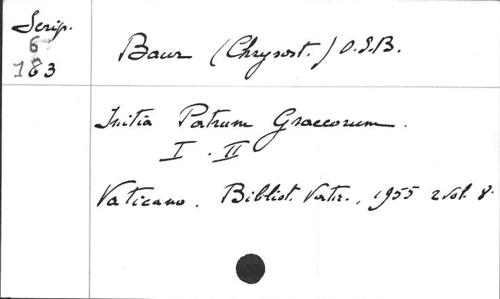 Scrip.
6
183
Baur (Chrysost.) O.S.B.
Initia Patrum Graecorum.
I. II
Vaticano. Bibliot. Vatic., 1955 2 vol. 8.